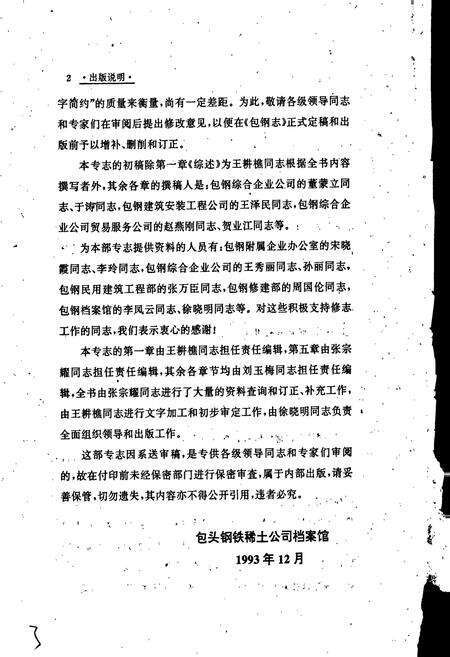 2 ·出版说明·
字简约”的质量来衡量,尚有一定差距。为此,敬请各级领导同志
和专家们在审阅后提出修改意见,以便在《包钢志》正式定稿和出
版前予以增补、删削和订正。
本专志的初稿除第一章《综述》为王耕樵同志根据全书内容
撰写者外,其余各章的撰稿人是:包钢综合企业公司的董蒙立同
志、于涛同志,包钢建筑安装工程公司的王泽民同志,包钢综合企
业公司贸易服务公司的赵燕刚同志、贺业江同志等。
为本部专志提供资料的人员有:包钢附属企业办公室的宋晓
霞同志、李玲同志,包钢综合企业公司的王秀丽同志、孙丽同志,
包钢民用建筑工程部的张万臣同志,包钢修建部的周国伦同志,
包钢档案馆的李凤云同志、徐晓明同志等。对这些积极支持修志
工作的同志,我们表示衷心的感谢!
本专志的第一章由王耕樵同志担任责任编辑,第五章由张宗
耀同志担任责任编辑,其余各章节均由刘玉梅同志担任责任编
辑,全书由张宗耀同志进行了大量的资料查询和订正、补充工作,
由王耕樵同志进行文字加工和初步审定工作,由徐晓明同志负责
全面组织领导和出版工作。
这部专志因系送审稿,是专供各级领导同志和专家们审阅
的,故在付印前未经保密部门进行保密审查,属于内部出版,请妥
善保管,切勿遗失,其内容亦不得公开引用,违者必究。
包头钢铁稀土公司档案馆
1993年12月
3